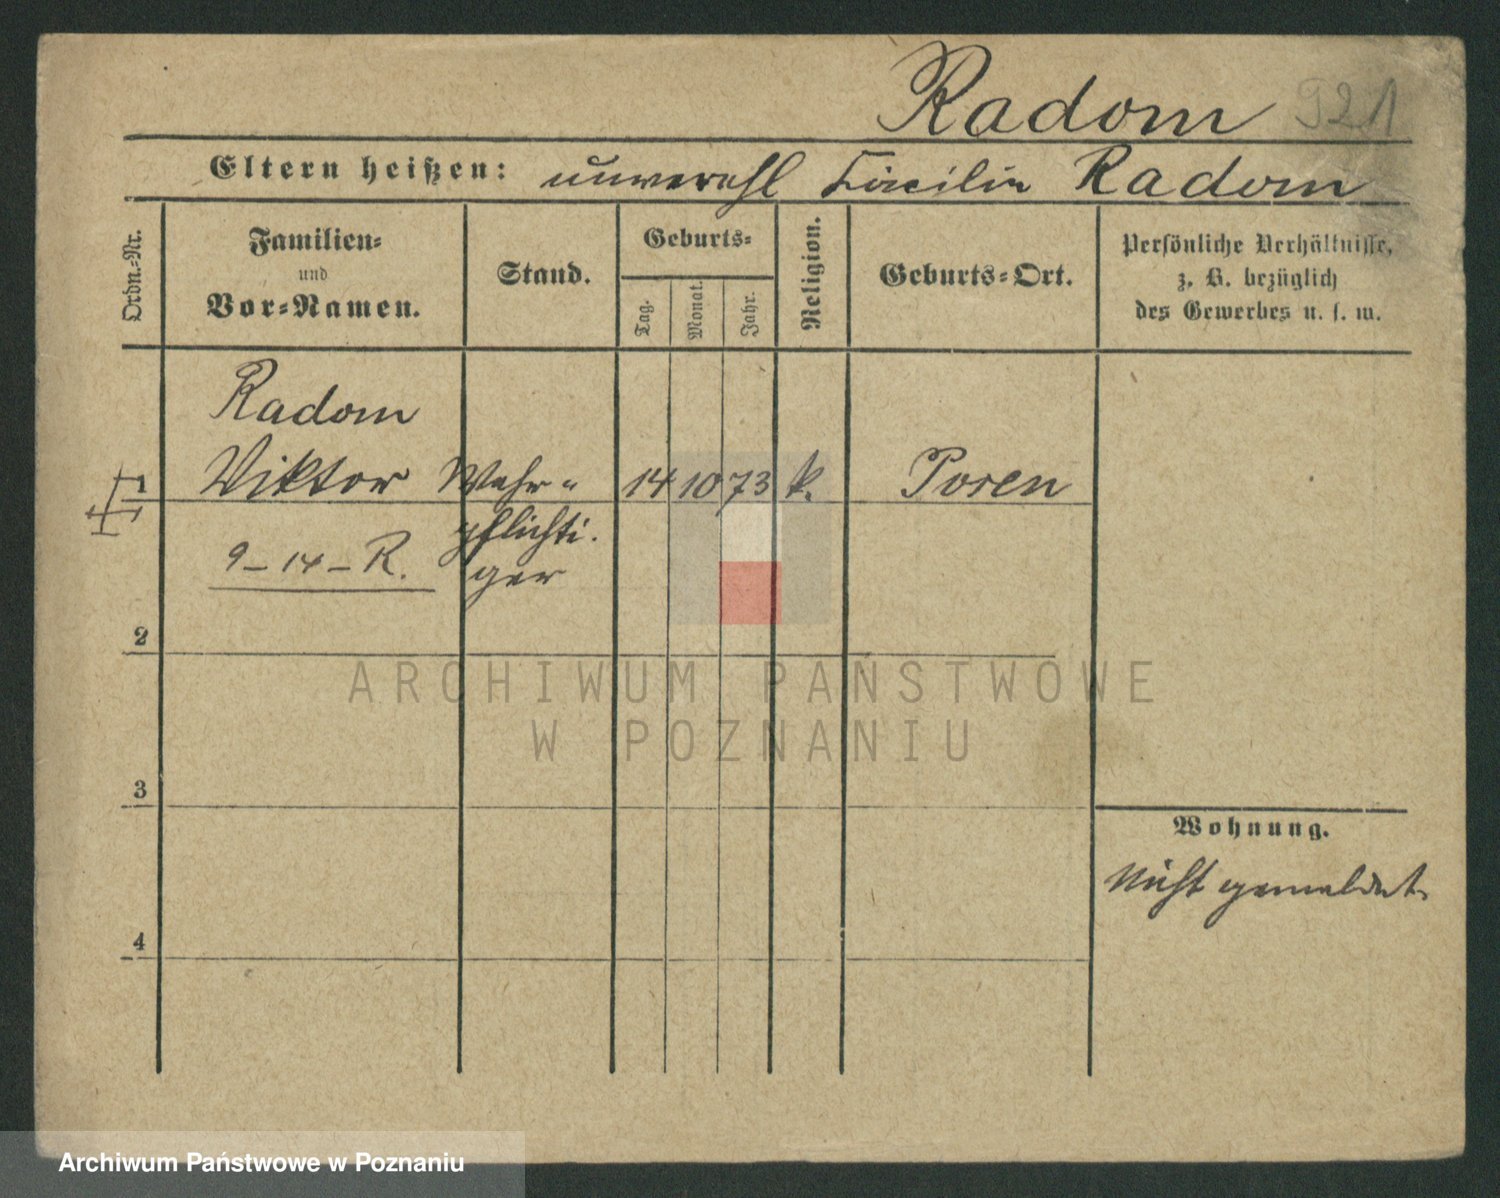 Radom 921
Eltern heißen: unverehl Cäcilie Radom
Ordn.-Nr.
Familien-
und
Vor-Namen.
Stand.
Geburts-
Tag.
Monat.
Jahr.
Religion.
Geburts-Ort.
Persönliche Verhältnisse,
z. B. bezüglich
des Gewerbes u. s. w.
Radom
1 Viktor Wehr- 14 10 73 k. Posen
pflichti-
9-14-R. ger
2
ARCHIWUM PAŃSTWOWE
W POZNANIU
3
Wohnung.
Nicht gemeldet.
4
Archiwum Państwowe w Poznaniu